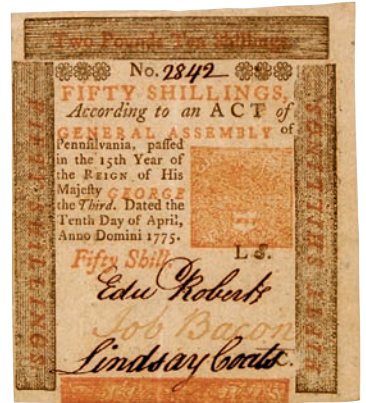 Two Pounds Ten Shillings
No. 2842
FIFTY SHILLINGS,
According to an ACT of
GENERAL ASSEMBLY of
Pennsilvania, passed
in the 15th Year of
the REIGN of His
Majesty GEORGE
the Third. Dated the
Tenth Day of April,
Anno Domini 1775.
Fifty Shill
L S.
Edw Roberts
Job Bacon
Lindsay Coats.
FIFTY SHILLINGS
FIFTY SHILLINGS